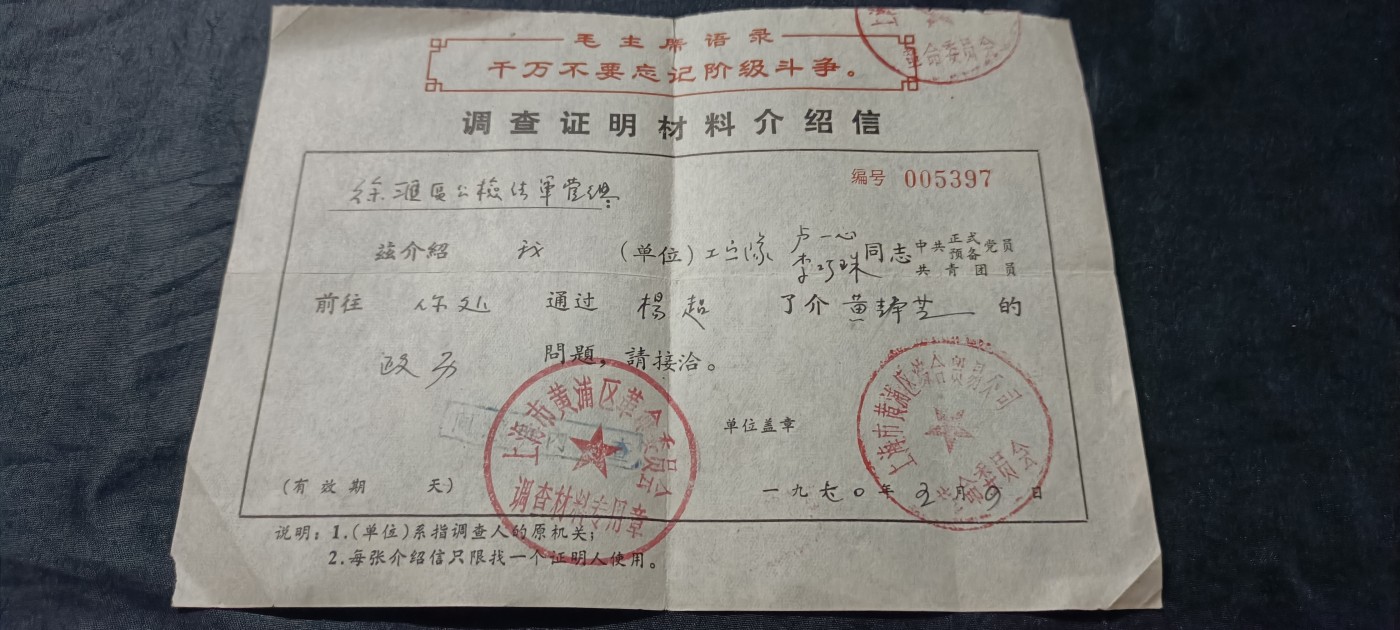 毛主席语录
千万不要忘记阶级斗争。
革命委员会
调查证明材料介绍信
编号 005397
徐滙區公檢法軍管组:
兹介紹 我 (单位) 工宣隊 卢一心 李巧珠 同志 中共 正式 预备 党员 共青团员
前往 你处 通过 楊超 了介 黄 芝 的
政历 問題,請接洽。
上海市黄浦区革命委员会
调查材料专用章
单位盖章
上海市黄浦区 贸易公司
革命委员会
(有效期 天)
一九七〇年 月9日
说明:1.(单位)系指调查人的原机关;
2.每张介绍信只限找一个证明人使用。